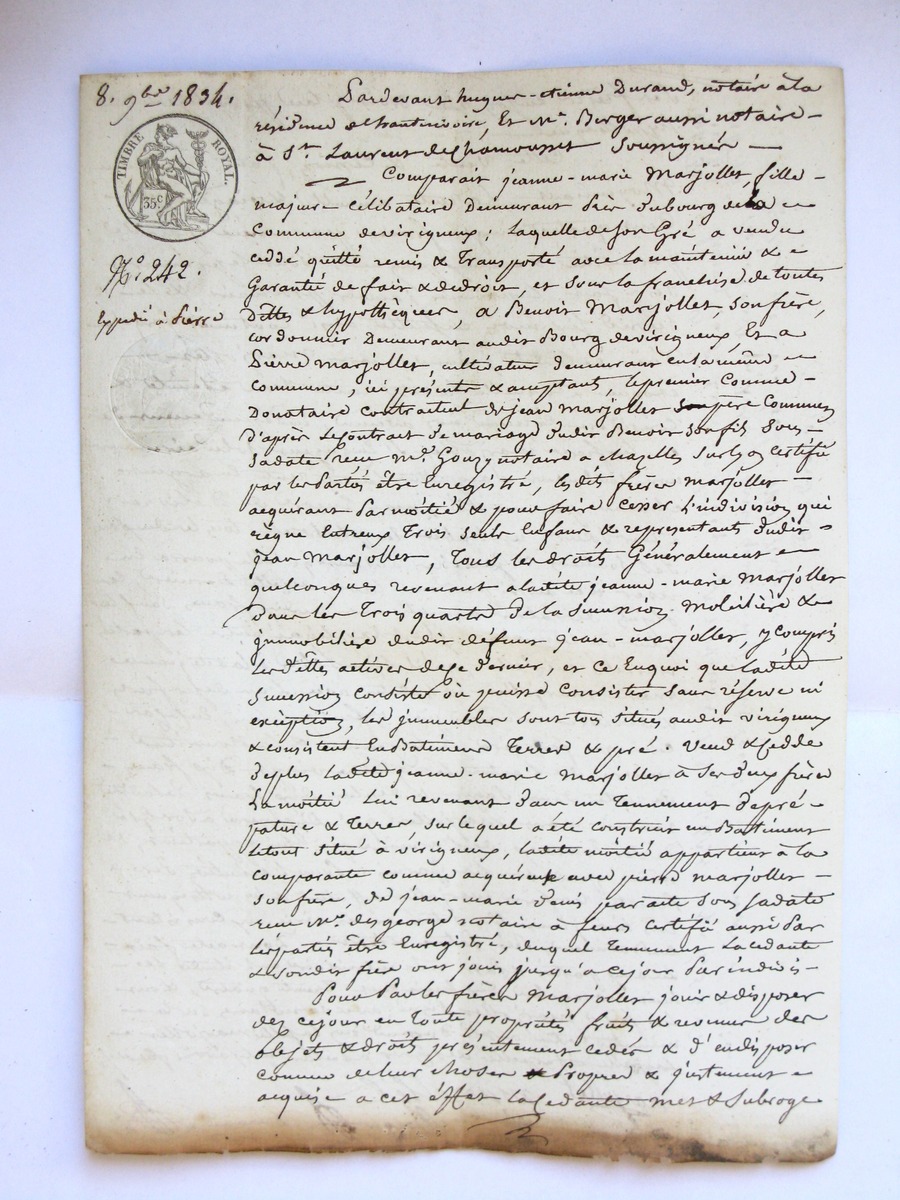 8. 9bre 1834.
TIMBRE ROYAL.
35c
No. 242.
Expédié à Pierre
Pardevant hugues-étienne Durand, notaire à la
résidence de hauterivoire, Et Me. Berger aussi notaire
à St. Laurent de Chamousset soussignés
Comparait jeanne-marie Marjollet, fille
majeure célibataire Demeurant dubourg de la
Commune de virigneux; laquelle de son Gré a vendu
cédé quitté remis & Transporté avec la maintenüe &
Garantie de fait & de droit, et sous la franchise de toutes
Dettes & hypothèques, a Benoit Marjollet, son frère,
cordonnier Demeurant audit Bourg de virigneux, Et a
Pierre Marjollet, cultivateur demeurant en la même
Commune, ici présents & acceptants, le premier Comme
Donataire contractuel de jean Marjollet père Commun
d'après le Contrat de mariage dudit Benoit son fils sous
sa date reçu Me. Gouzy notaire a chazelles sur Lyon Certifié
par les Parties être Enregistré, lesdits frères Marjollet
acquérant Par moitié & pour faire cesser l'indivision qui
règne Entreux Trois seuls Enfans & représentants dudit
jean Marjollet, Tous les droits Généralement
quelconques revenant a ladite jeanne-marie Marjollet
Dans les Trois quarts de la Succession Mobilière &
immobilière dudit défunt jean-marjollet, y Compris
les dettes actives de ce dernier, et ce Enquoi que ladite
Succession consiste ou puisse Consister sans réserve ni
exception, les immeubles sont tous situés audit virigneux
& consistent En Batiments Terres & pré. Vend & Cedde
deplus ladite jeanne-marie Marjollet à ses deux frères
La moitié lui revenant dans un Tennement de pré
pature & Terres, sur lequel a été construit un Batiment
le tout situé à virigneux, ladite moitié appartient à la
comparante comme acquéreur avec pierre marjollet
son frère, de jean-marie denis par acte sous sa date
reçu Me. desgeorge notaire à feurs Certifié aussi Par
les parties être Enregistré, duquel Tennement la cedante
& sondit frère ont jouis jusqu'a ce jour Par indivis
Pour Par les frères Marjollet jouir & disposer
dez ce jour en Toute propriétés fruits & revenus des
objets & droits présentement cedés & d'en disposer
comme de leur choses Propres & justement
acquise a cet éffet la Cedante met & Subroge